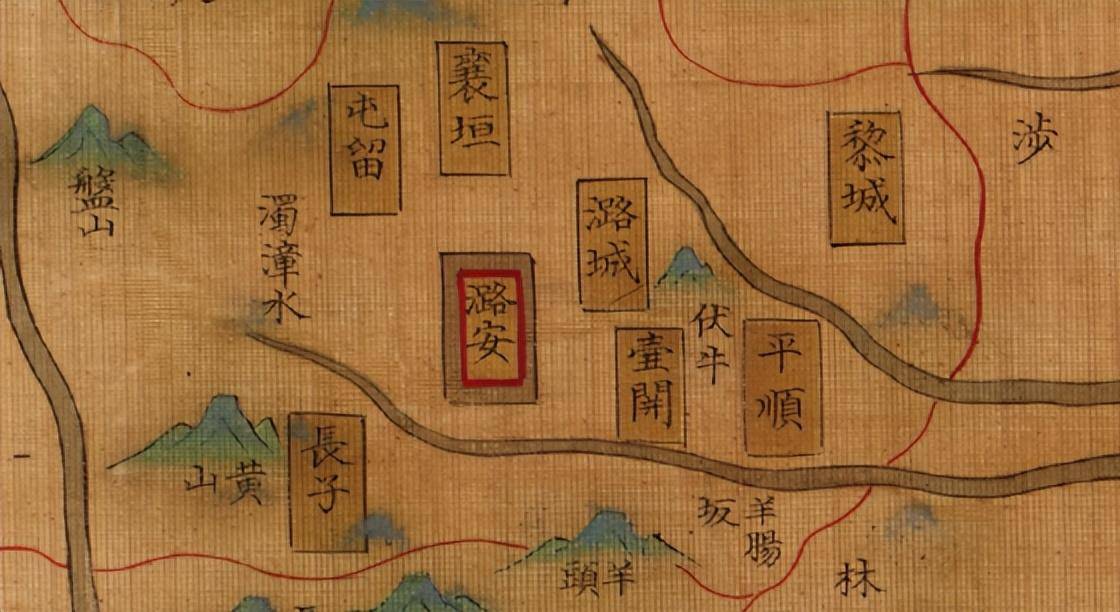 襄垣
屯留
黎城
涉
盤山
濁漳水
潞城
潞安
伏牛
壺開
平順
長子
黄山
羊腸
坂
羊頭
林